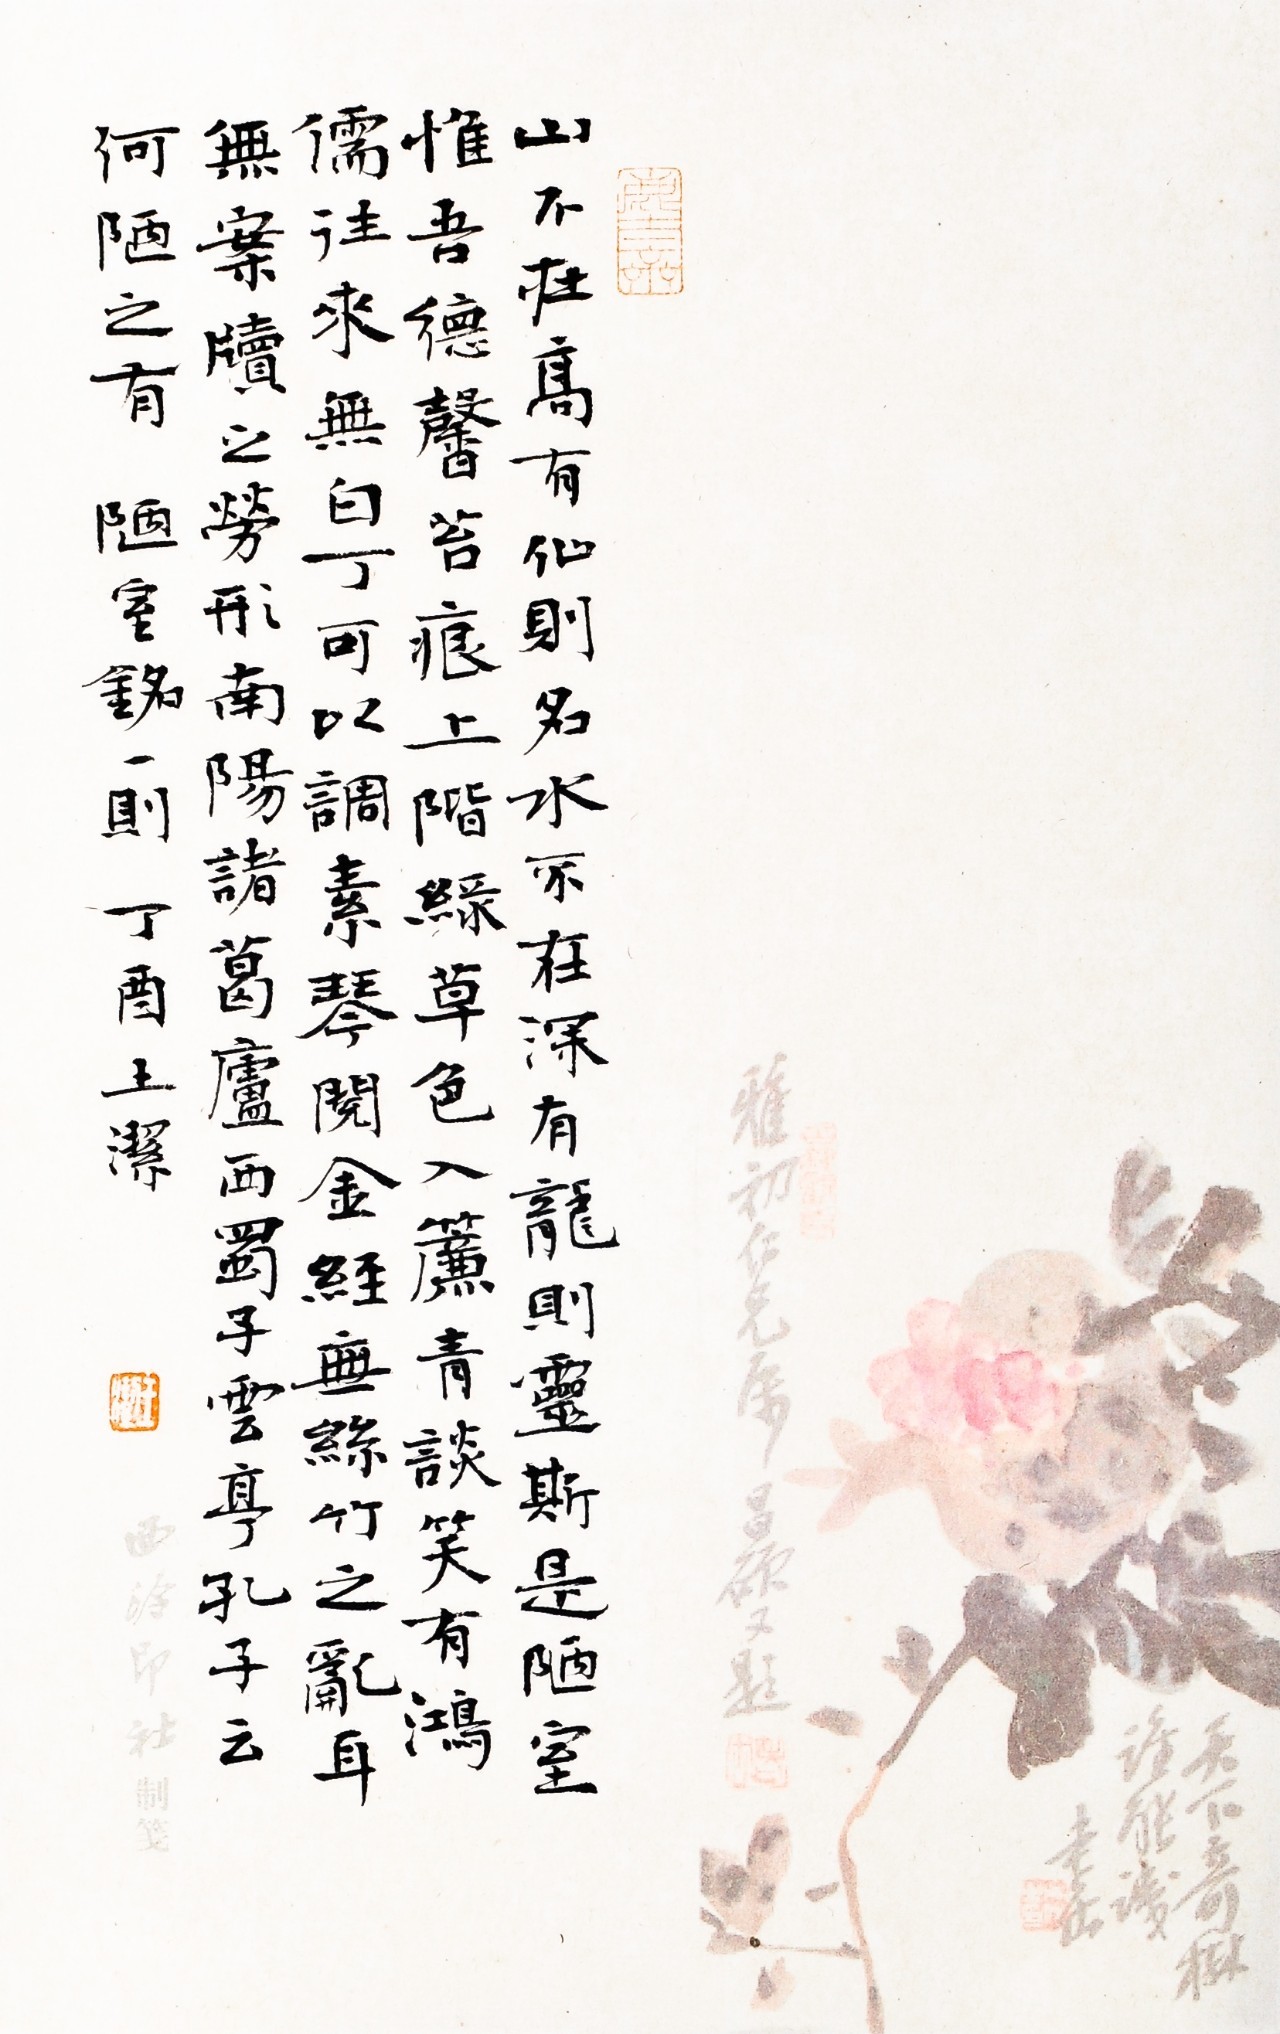 山不在高有仙則名水不在深有龍則靈斯是陋室
惟吾德馨苔痕上階綠草色入簾青談笑有鴻
儒往來無白丁可以調素琴閱金經無絲竹之亂耳
無案牘之勞形南陽諸葛廬西蜀子雲亭孔子云
何陋之有 陋室銘一則 丁酉王潔
西泠印社制箋
雅初仁兄属 昌碩又題
誰能識